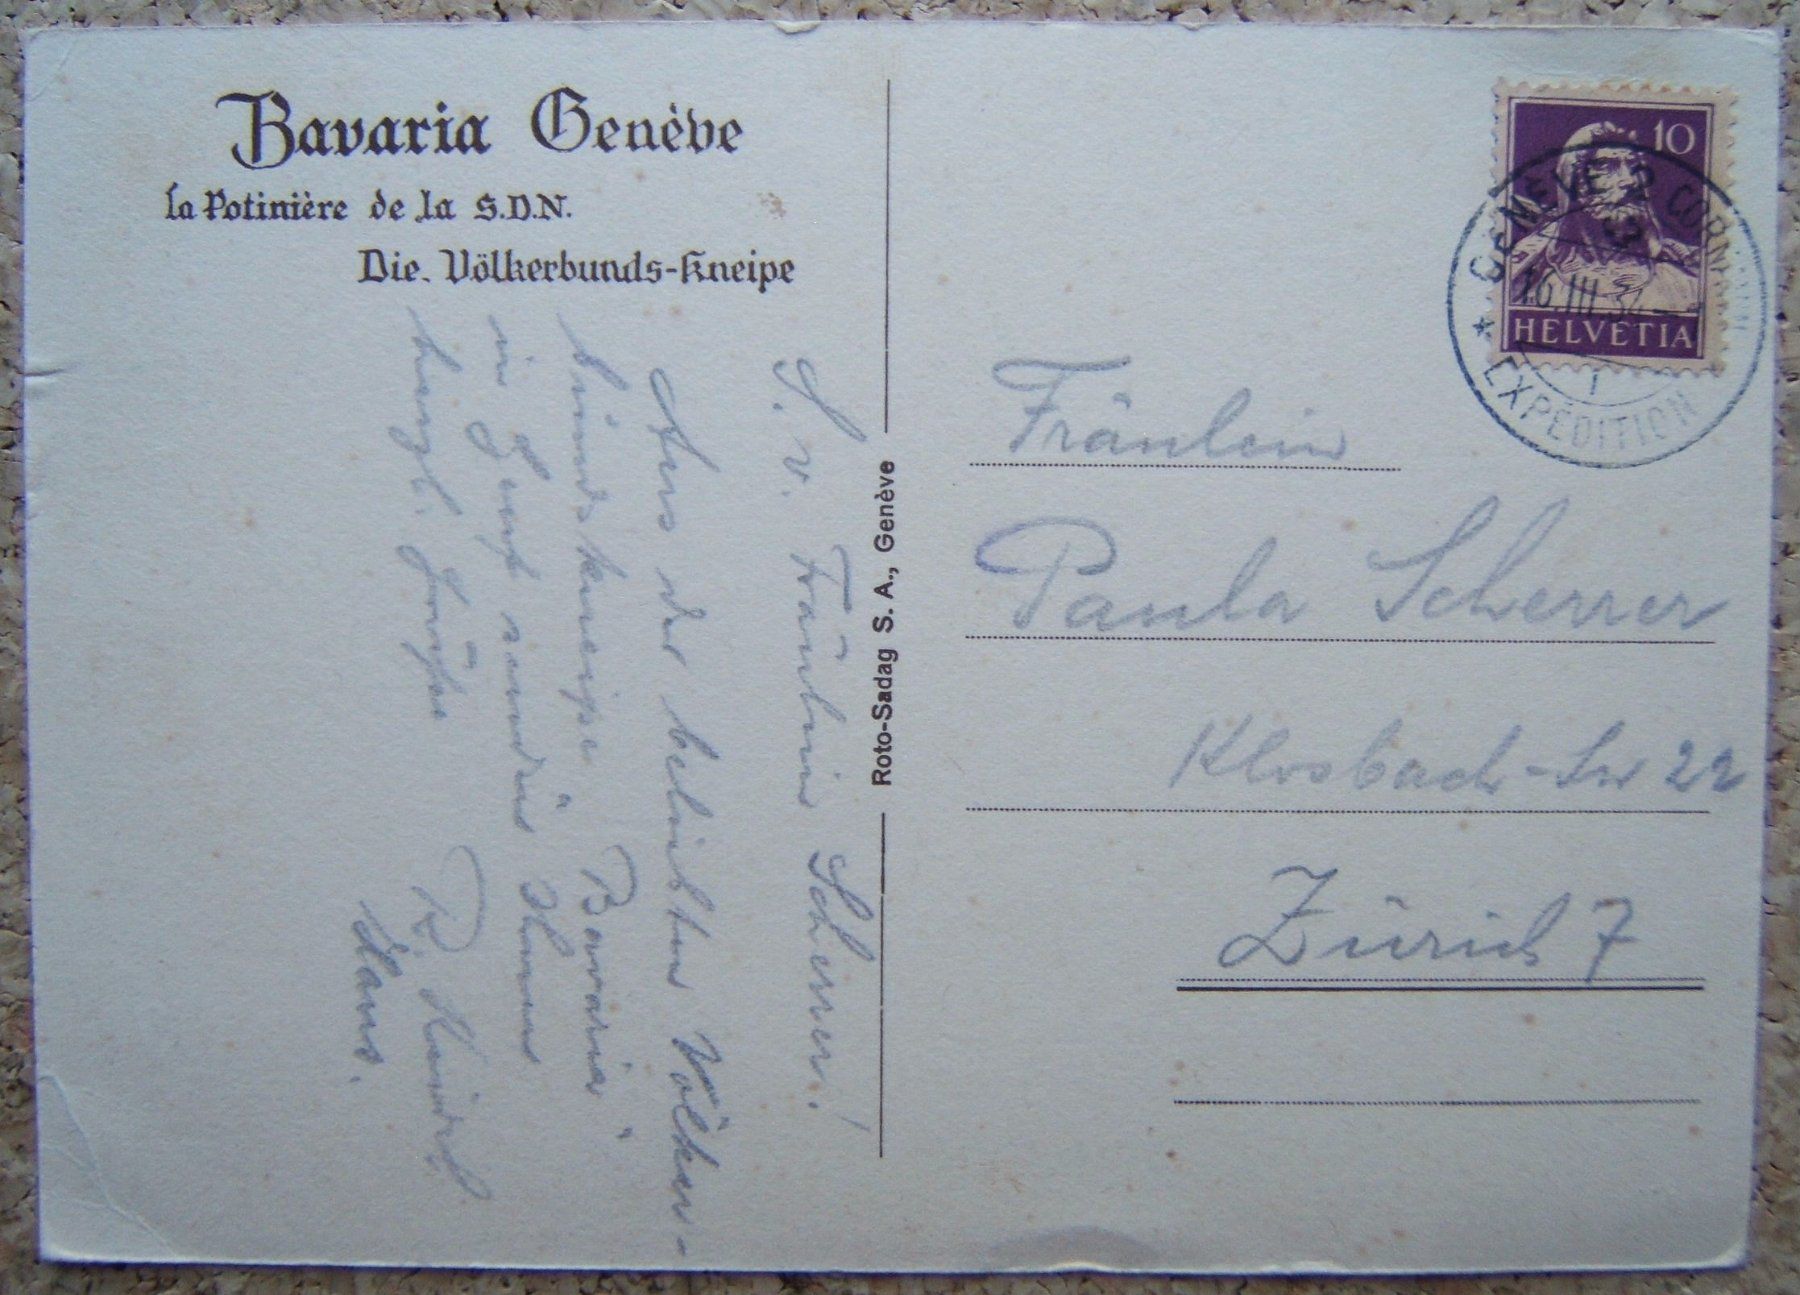 Bavaria Genève
la Potinière de la S.D.N.
Die Völkerbunds-Kneipe
S. v. Fräulein Scherrer!
Aus der beliebten Völker-
bundskneipe "Bavaria"
in Genf senden Ihnen
herzl. Grüsse
Hans.
Roto-Sadag S. A., Genève
10
HELVETIA
GENÈVE 2 CORNAVIN
16.III.
* EXPÉDITION
Fräulein
Paula Scherrer
Klosbach-Str 22
Zürich 7